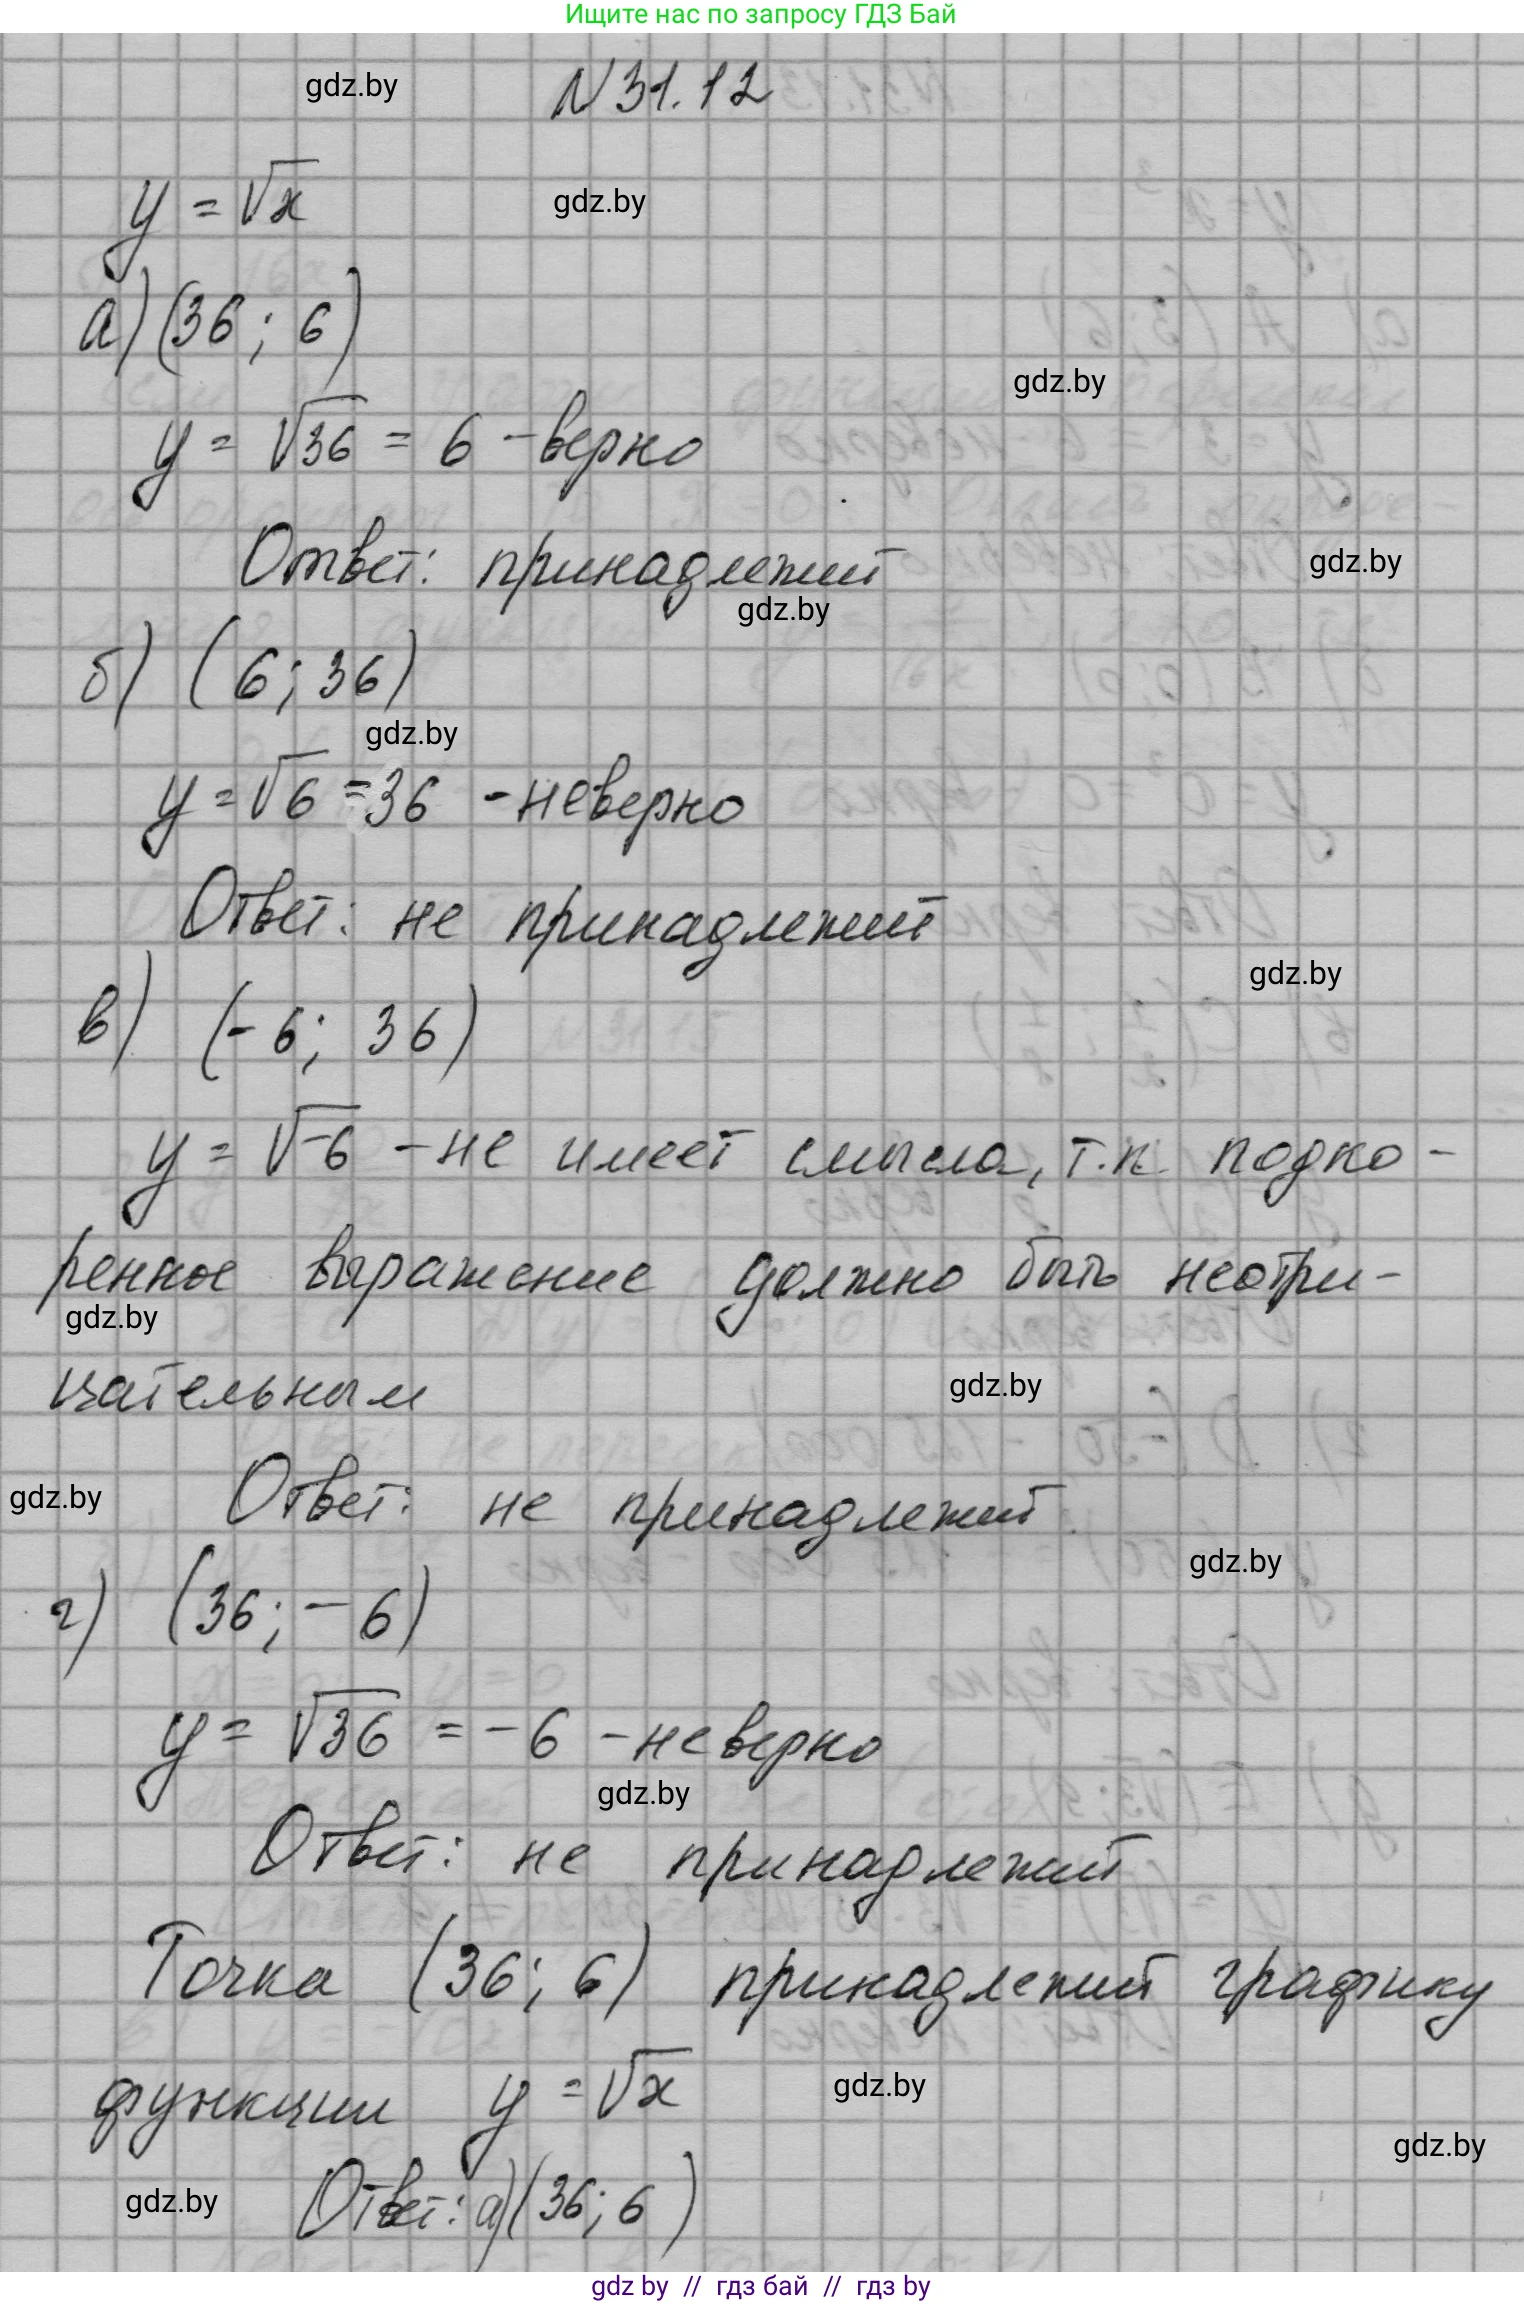 Ищите нас по запросу ГДЗ Бай
gdz.by
N31.12
y = √x
gdz.by
а) (36; 6)
gdz.by
y = √36 = 6 - верно
Ответ: принадлежит
gdz.by
gdz.by
б) (6; 36)
gdz.by
y = √6 = 36 - неверно
Ответ: не принадлежит
gdz.by
в) (-6; 36)
y = √-6 - не имеет смысла, т.к. подко-
ренное выражение должно быть неотри-
gdz.by
цательным
gdz.by
gdz.by
Ответ: не принадлежит
gdz.by
г) (36; -6)
y = √36 = -6 - неверно
gdz.by
Ответ: не принадлежит
Точка (36; 6) принадлежит графику
функции y = √x
gdz.by
gdz.by
gdz.by
Ответ: а) (36; 6)
gdz by // гдз бай // гдз by